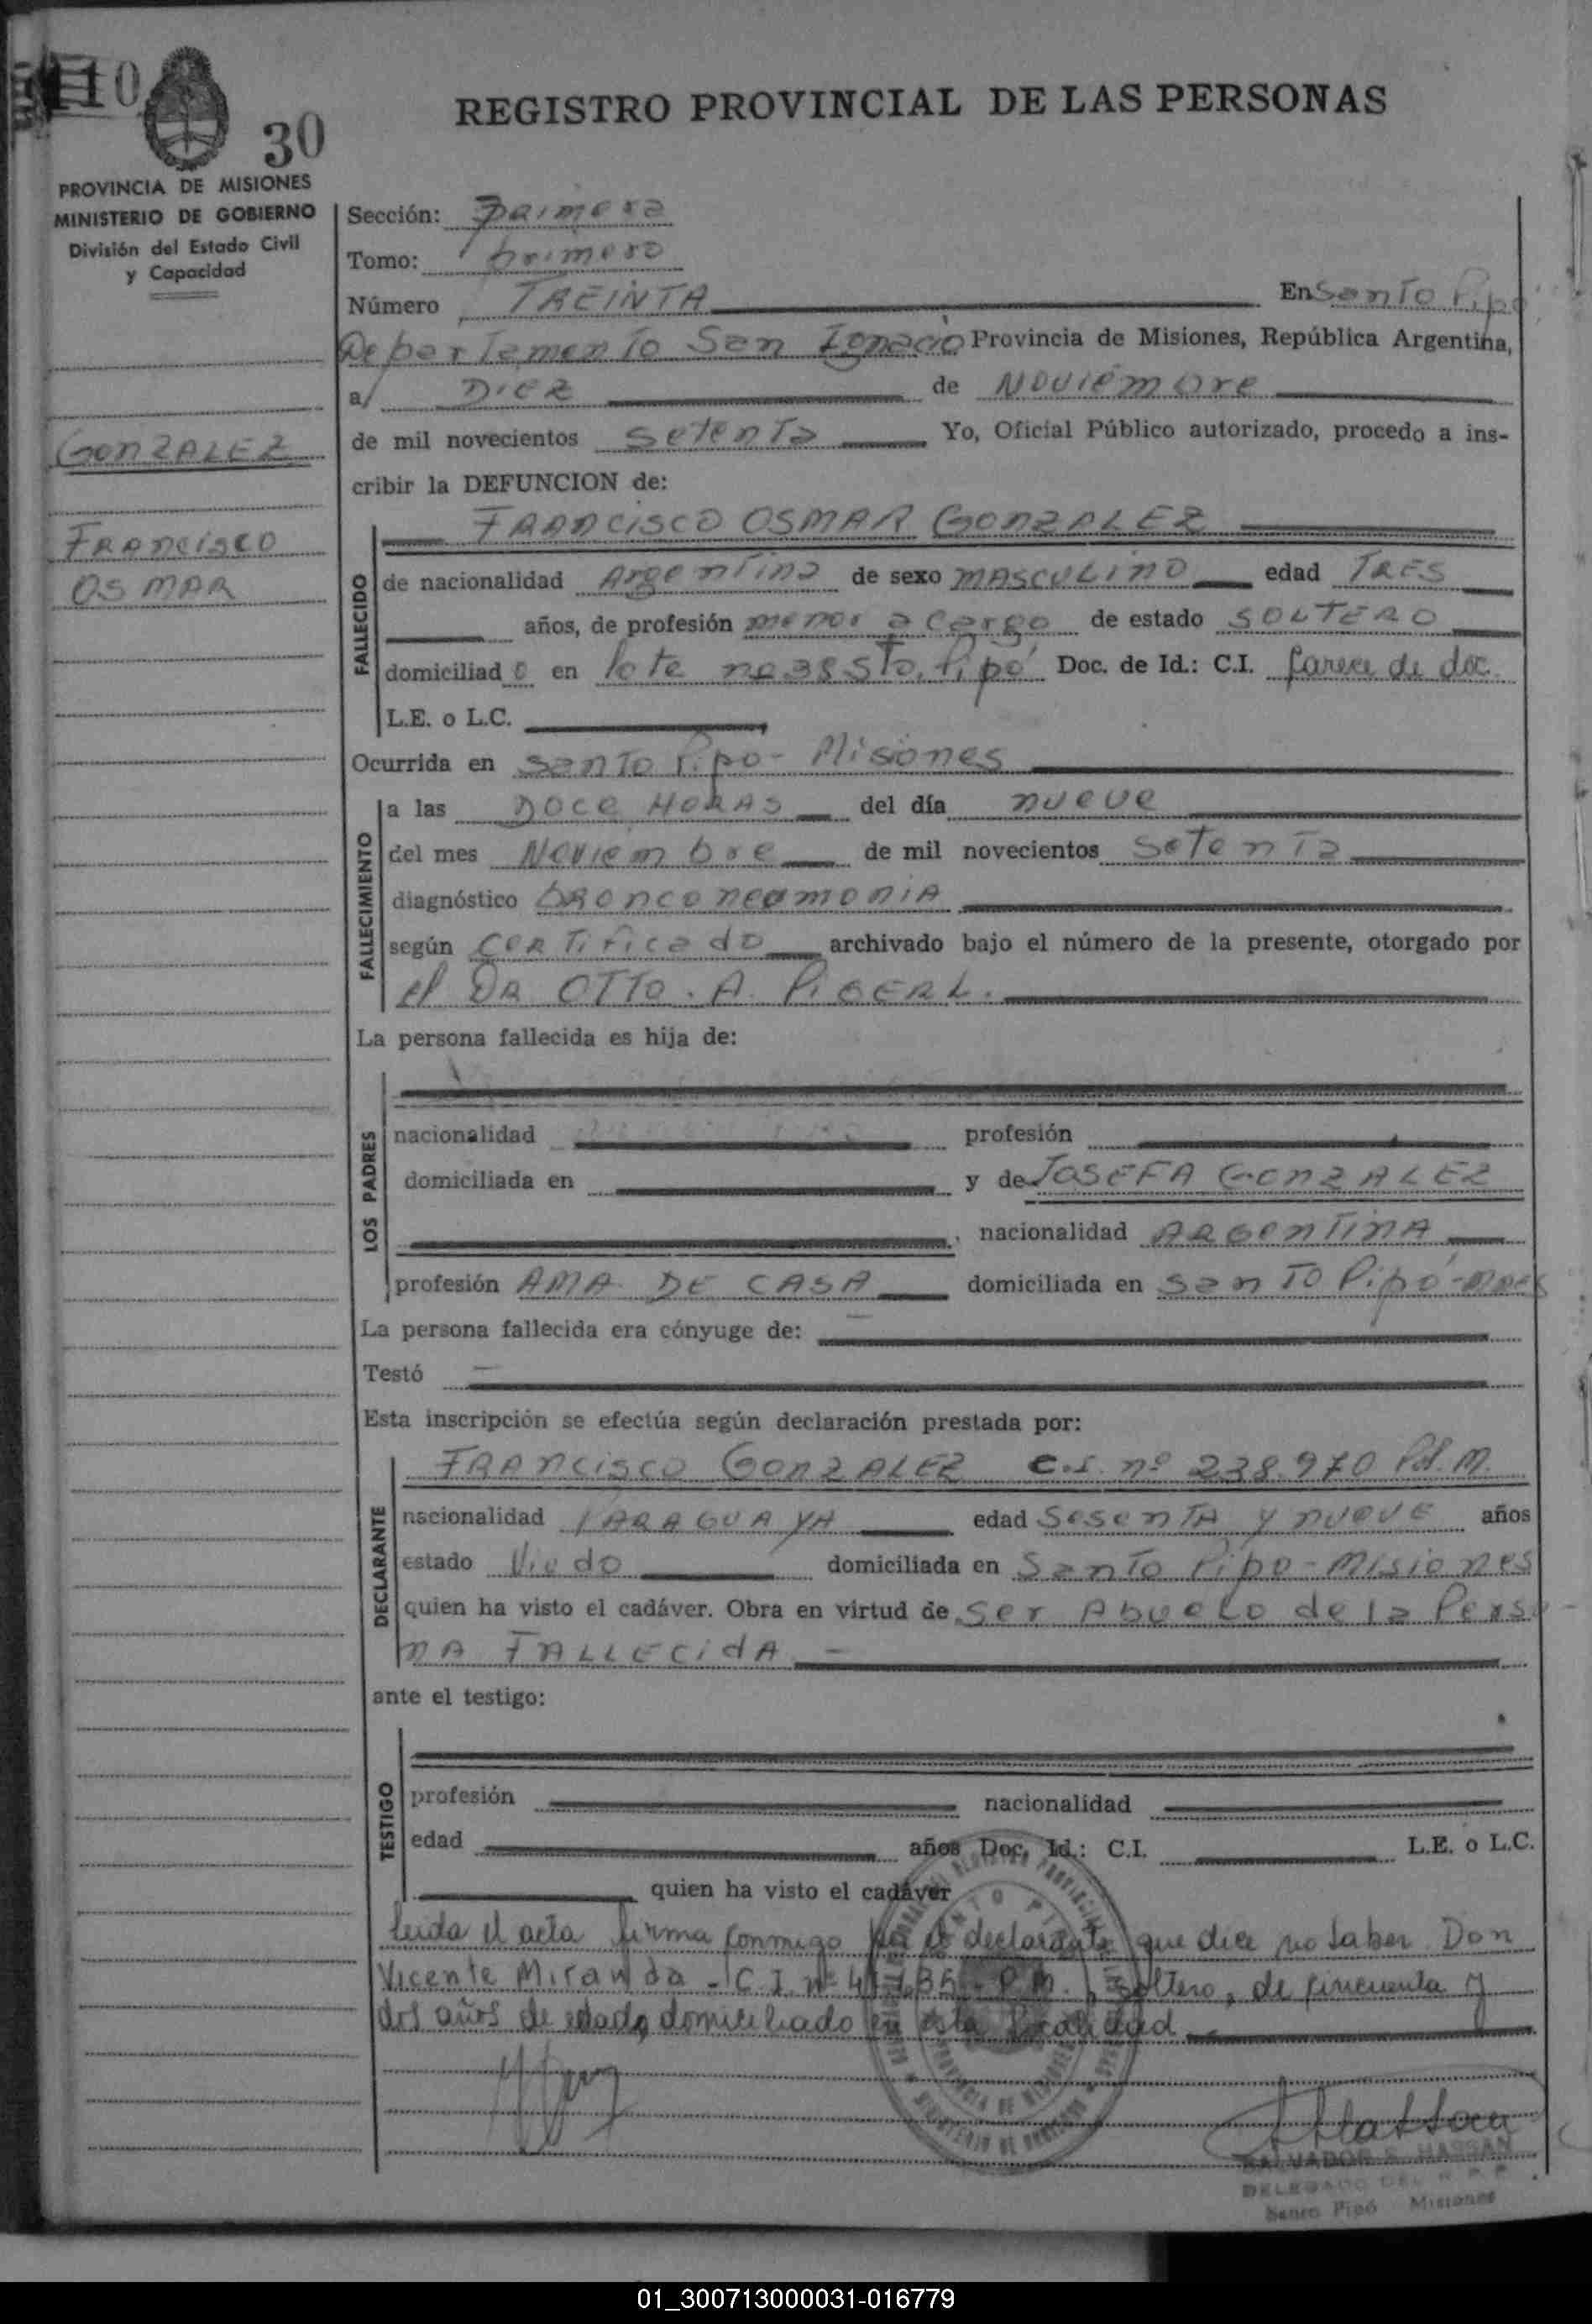 110
30
REGISTRO PROVINCIAL DE LAS PERSONAS
PROVINCIA DE MISIONES
MINISTERIO DE GOBIERNO
División del Estado Civil
y Capacidad
GONZALEZ
FRANCISCO
OSMAR
Sección: Primera
Tomo: primero
Número TREINTA En Santo Pipó
Departamento San Ignacio Provincia de Misiones, República Argentina,
a/ DIEZ de NOVIEMBRE
de mil novecientos setenta Yo, Oficial Público autorizado, procedo a ins-
cribir la DEFUNCION de:
FRANCISCO OSMAR GONZALEZ
FALLECIDO
de nacionalidad Argentina de sexo MASCULINO edad TRES
años, de profesión menor a cargo de estado SOLTERO
domiciliado en lote nº 38 Sto. Pipó Doc. de Id.: C.I. Carece de doc.
L.E. o L.C.
Ocurrida en Santo Pipó - Misiones
FALLECIMIENTO
a las DOCE HORAS del día nueve
del mes Noviembre de mil novecientos setenta
diagnóstico bronconeumonia
según certificado archivado bajo el número de la presente, otorgado por
el DR OTTO. A.
La persona fallecida es hija de:
LOS PADRES
nacionalidad profesión
domiciliada en y de JOSEFA GONZALEZ
nacionalidad ARGENTINA
profesión AMA DE CASA domiciliada en Santo Pipó - Mnes
La persona fallecida era cónyuge de:
Testó
Esta inscripción se efectúa según declaración prestada por:
DECLARANTE
FRANCISCO GONZALEZ C.I. nº 238.970 Pol. M.
nacionalidad PARAGUAYA edad SESENTA y nueve años
estado Viudo domiciliada en Santo Pipó - Misiones
quien ha visto el cadáver. Obra en virtud de ser Abuelo de la Perso
NA FALLECIDA
ante el testigo:
TESTIGO
profesión nacionalidad
edad años Doc. Id.: C.I. L.E. o L.C.
quien ha visto el cadáver
Leida el acta firma conmigo por el declarante que dice no saber Don
Vicente Miranda - C.I. nº P.M., soltero, de cincuenta y
dos años de edad, domiciliado en esta localidad
SALVADOR S. HASSAN
DELEGADO DEL R. P. P.
Santo Pipó Misiones
01_300713000031-016779